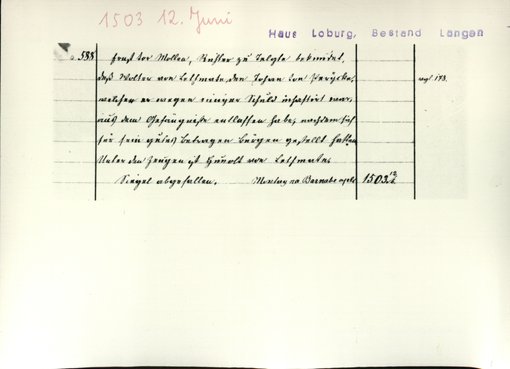 1503 12. Juni
Haus Loburg, Bestand Langen
588 Ernst tor Mollen, Richter zu Telgte bekundet,
daß Wolter von Letmate, den Johan von
welchen er wegen einiger Schuld inhaftirt war,
aus dem Gefängniße entlassen habe, nachdem sich
für sein gutes betragen bürgen gestellt hatten
Unter den Zeugen ist von Letmate
Siegel abgefallen. Montag na Barnabe apli 1503 12/6
vgl. 193.